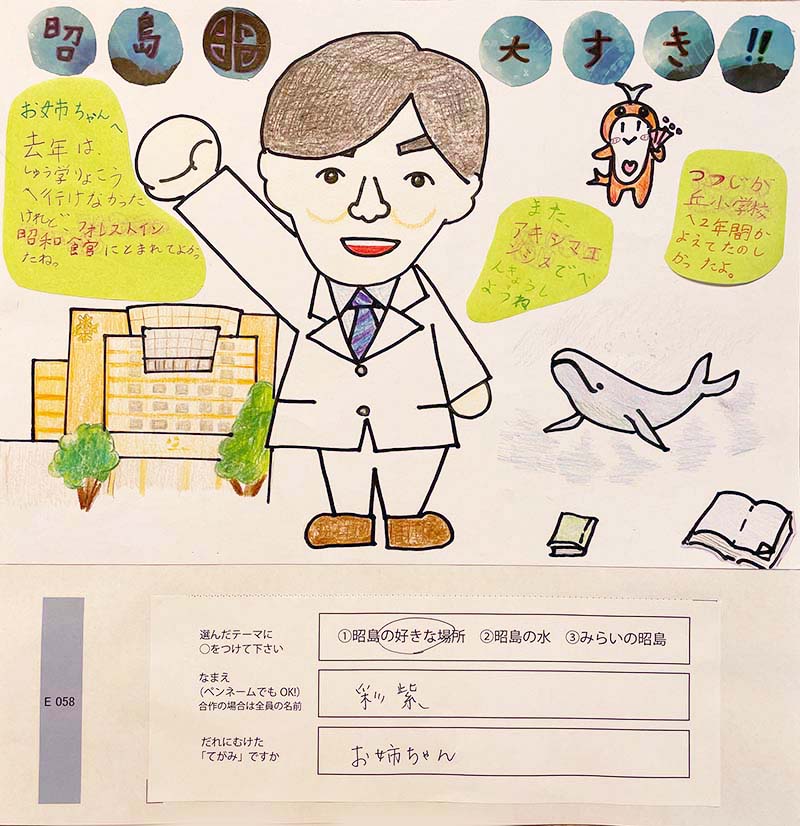 昭島 大すき!!
お姉ちゃんへ
去年は、
しゅう学りょこう
へ行けなかった
けれど、フォレストイン
昭和館にとまれてよかっ
たねっ
また、
アキシマエ
ンシスでべ
んきょうし
ようね
つつじが
丘小学校
へ2年間か
よえてたのし
かったよ。
E 058
選んだテーマに
○をつけて下さい
①昭島の好きな場所 ②昭島の水 ③みらいの昭島
なまえ
(ペンネームでもOK!)
合作の場合は全員の名前
彩紫
だれにむけた
「てがみ」ですか
お姉ちゃん